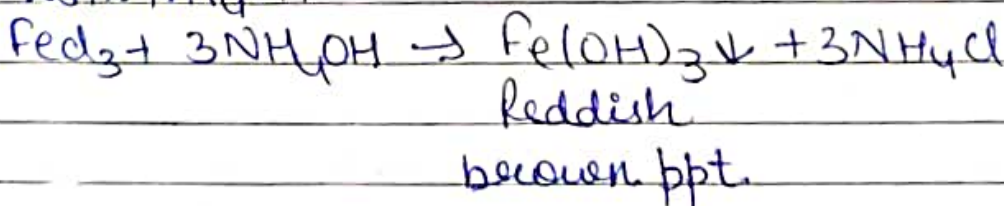 FeCl₃ + 3NH₄OH → Fe(OH)₃↓ + 3NH₄Cl
Reddish
brown ppt.